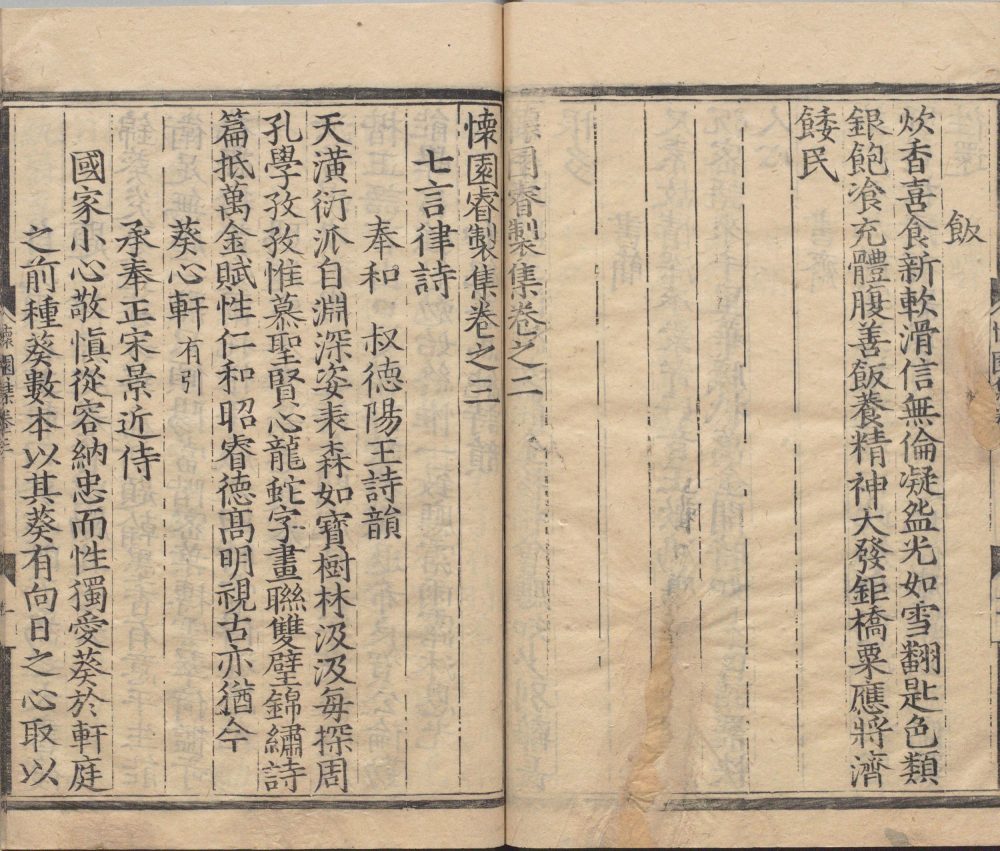 飯
炊香喜食新軟滑信無倫凝盌光如雪翻匙色類
銀飽飡充體腹善飯養精神大發鉅橋粟應將濟
餧民
懷園睿製集卷之二
懷園睿製集卷之三
七言律詩
奉和 叔德陽王詩韻
天潢衍派自淵深姿表森如寶樹林汲汲每探周
孔學孜孜惟慕聖賢心龍蛇字畫聯雙璧錦繡詩
篇抵萬金賦性仁和昭睿德髙明視古亦猶今
葵心軒有引
承奉正宋景近侍
國家小心敬慎從容納忠而性獨愛葵於軒庭
之前種葵數本以其葵有向日之心取以
懷園集卷三